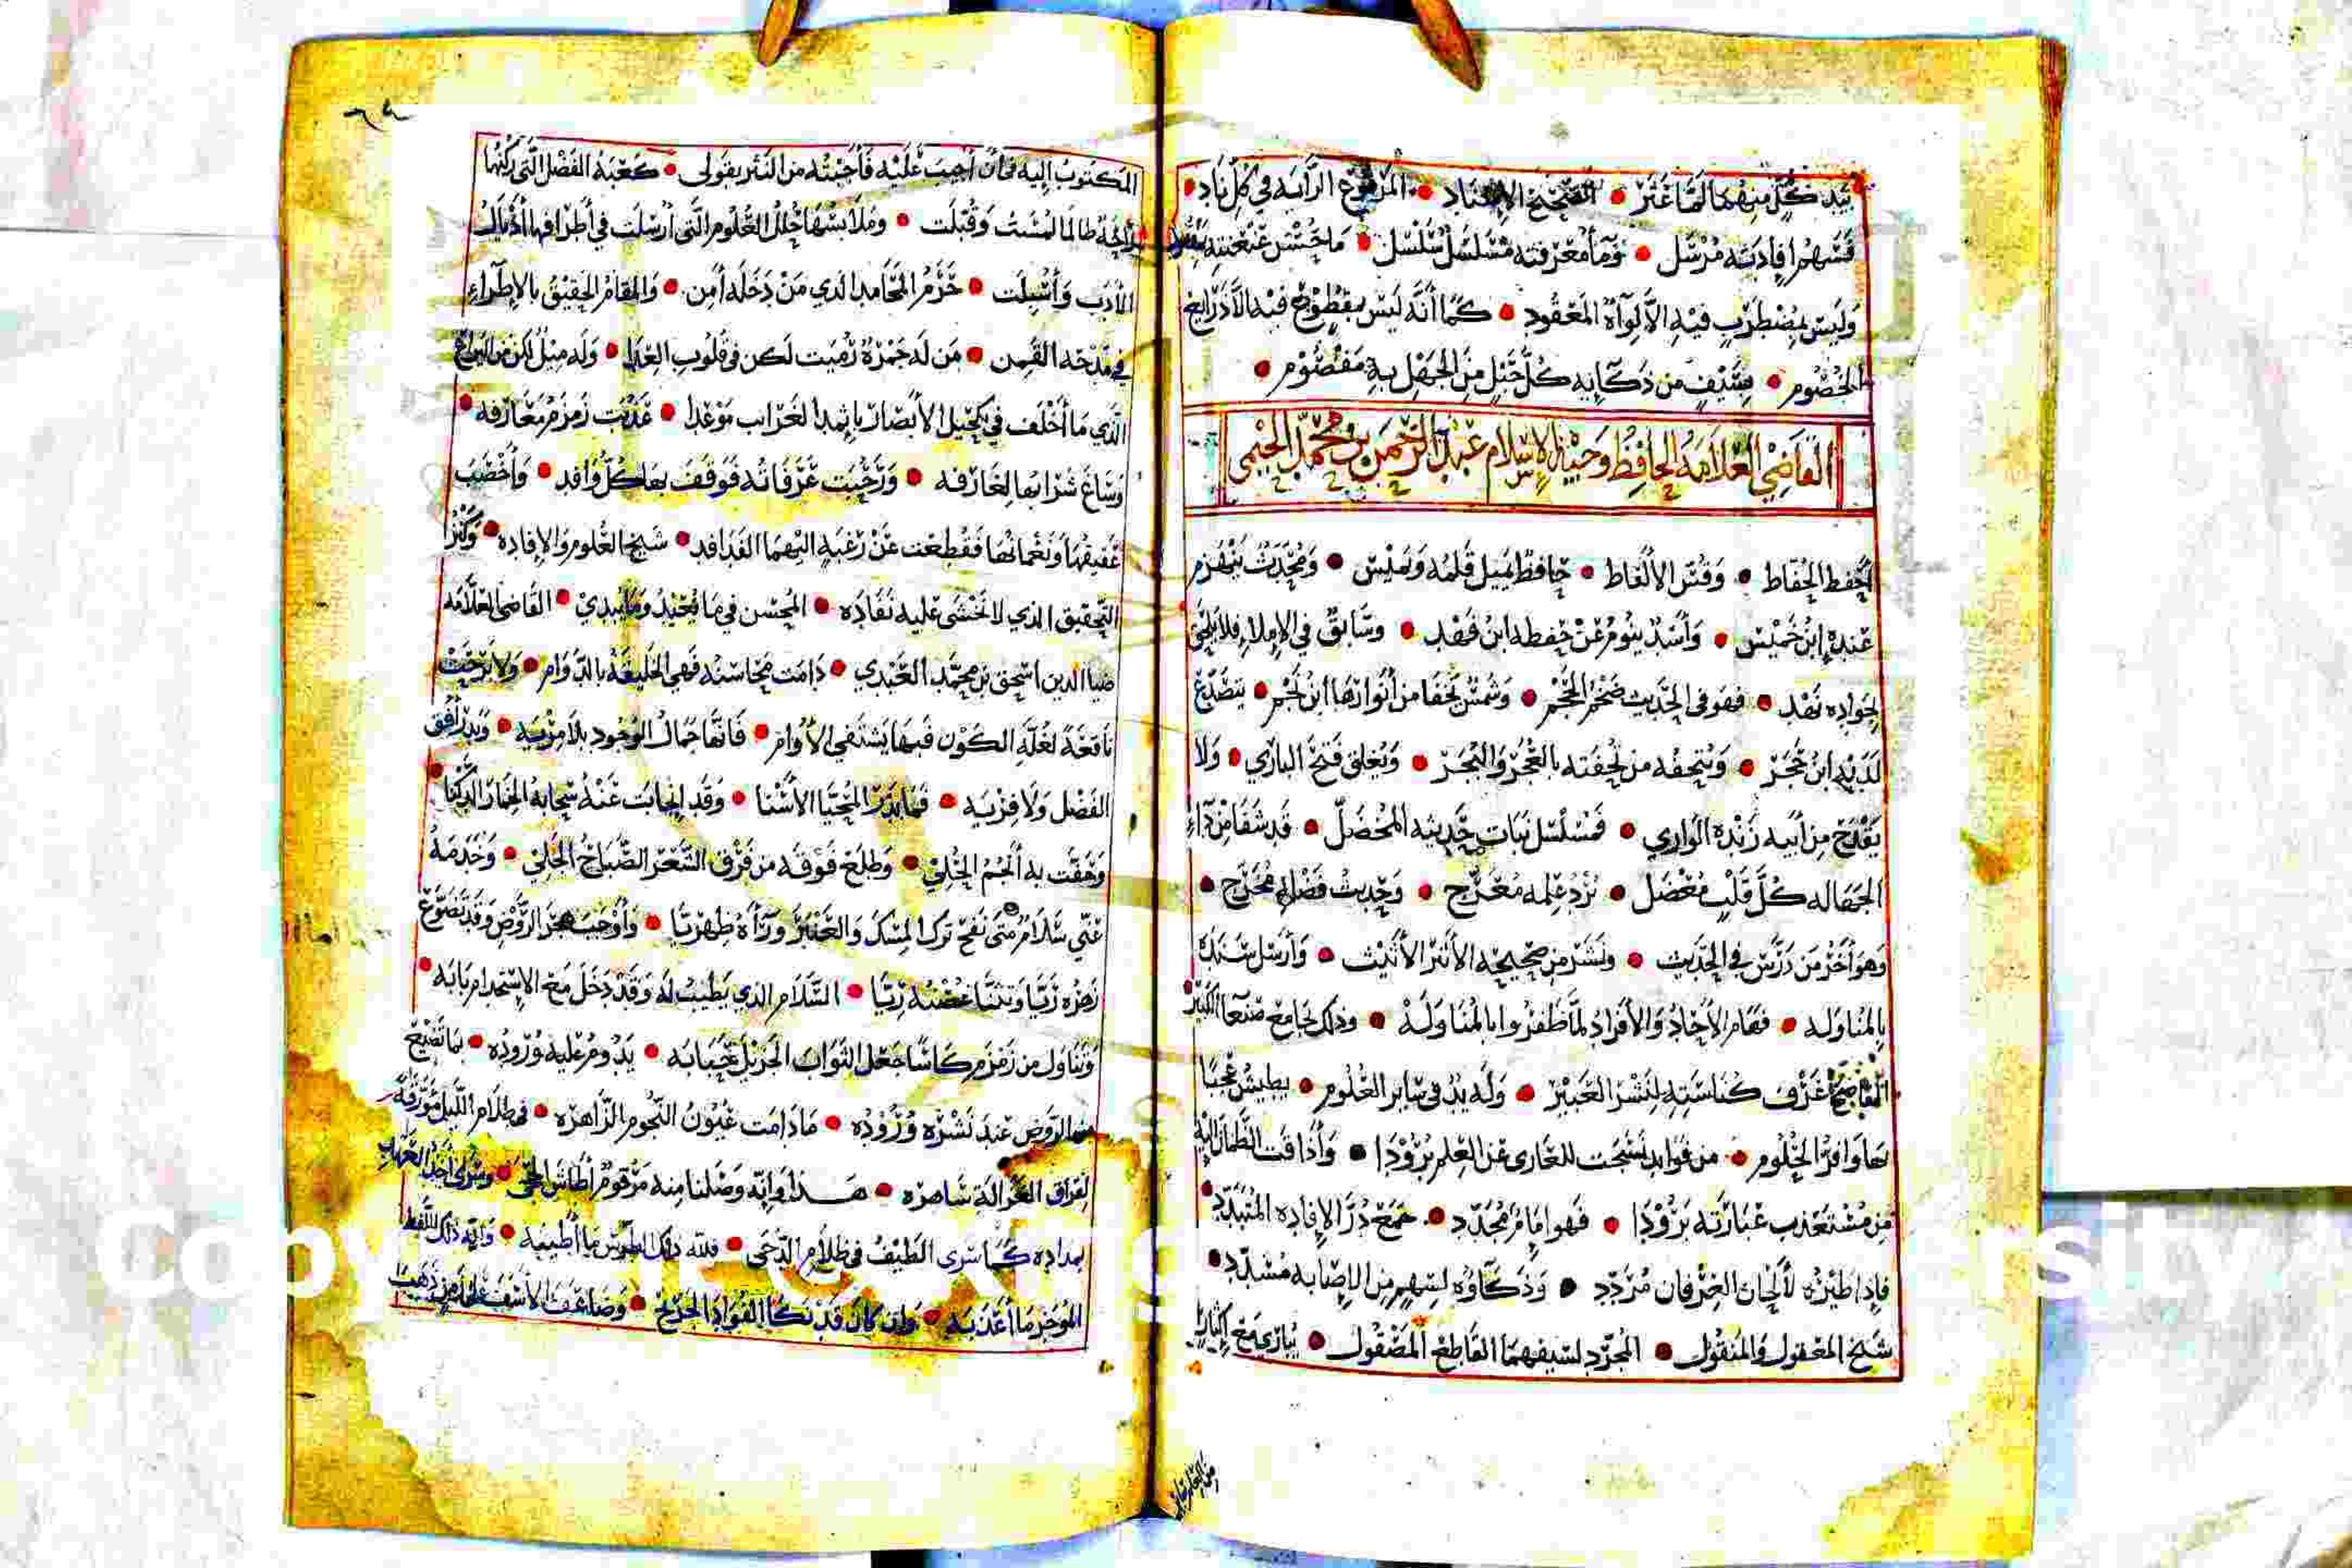 بيد كل منهما لما غبر • الصحيح الإسناد • المرفوع الراية في كل ناد •
فسهم إفادته مرسل • وماء معرفته مسلسل سلسل • ما خشن عنعنته
وليس بمضطرب فيه الألوآء المعقود • كما أنه ليس بمقطوع فيه إلا
الخصوم • بسيف من ذكائه كل حبل من الجهل به مفصوم •
القاضي العلامة الحافظ وجيه الإسلام عبد الرحمن بن محمد الحيمي
أحفظ الحفاظ • وقس الألفاظ • حافظ يميل قلمه ويميس • ومحدث ينهزم
عنده ابن خميس • وأسد ينوم عن حفظه ابن فهد • وسابق في الإملاء فلا يلحق
لجواده نهد • فهو في الحديث ضخم الحجم • وشمس تخفا من أنوارها ابن نجم • يتضدع
لديه ابن حجر • ويتحفه من تحفته بالعجر والبجر • ويغلق فتح الباري • ولا
يقدح من أبيه زنده الواري • فمسلسل نبات حديثه المخضل • قد شفا من داء
الجهاله كل قلب معضل • برد علمه مدبج • وحديث فضله مخرج •
وهو آخر من درس في الحديث • ونشر من صحيحه الأثر الأثيث • وأرسل سنده
بالمناوله • فهام الآحاد والأفراد لما ظفروا بالمناولة • وذلك بجامع صنعا الكبير
غرف كناسته لنشر العبير • وله يد في ساير العلوم • يطيش عجبا
بها وافر الحلوم • من فوايد نسجت للعاري عن العلم برودا • وأذاقت الظمآن إليه
من مستعذب عبارته برودا • فهو إمام مجدد • جمع درر الإفاده المتبدد •
فإذا طيره لألحان العرفان مردد • وذكاؤه لسهم من الإصابه مسدد •
شيخ المعقول والمنقول • المجرد لسيفهما القاطع المصقول •
المكتوب إليه في أن أجيب عليه فأجبته من النثر بقولي • كعبة الفضل التي ركنها
طالما لمست وقبلت • وملابسها حلل العلوم التي أرسلت في أطرافها أذيال
الأدب وأسبلت • حرم المحامد الذي من دخله أمن • والمقام الحقيق بالإطراء
في مدحه القمن • من له جمرة رميت لكن في قلوب العدا • وله ميل لكن من اليراع
الذي ما أخلف في تكحيل الأبصار بإثمد الغرايب موعدا • عذبت زمزم معارفه •
وساغ شرابها لغارفه • ورحبت عرفاته فوقف بها كل وافد • وأخصب
عقيقها ونعمانها فقطعت عن رغبة إليهما الفدافد • شيخ العلوم والإفاده • وكنز
التحقيق الذي لا نخشى عليه نفاده • المحسن فيما يعيد وما يبدي • القاضي العلامه
ضيا الدين اسحق بن محمد العبدي • دامت محاسنه فهي الخليقة بالدوام • ولا برحت
ناقعة لغلة الكون فبها يشتفي الأوام • فإنها جمال الوجود بلا مزيه • وبدر أفق
الفضل ولا فريه • فما بدر المحيا الأسنا • وقد انجابت عنه سحابة الخمار الدكنا •
وحفت به أنجم الحلي • وطلع فوقه من فرق الشعر الصباح الجلي • وخدمه
عني سلام متى نفح ترك المسك والعنبر وراءه ظهريا • وأوجب هجر الروض وقد تضوع
زهره ريا وتثنا غصنه ريا • السلام الذي يطيب له وقد دخل مع الاستخدام بابه •
وتناول من زمزم كاسا جعل الثواب الجزيل حبابه • يدوم عليه وروده • بما تضيع
الروض عند نشره وروده • ما دامت عيون النجوم الزاهره • في ظلام الليل مورقه
لفراق الغزالة ساهره • هذا وإنه وصلنا منه مرقوم أطاش الحجى •
بمداده كما سرى الطيف في ظلام الدجى • فلله ذلك الطرس ما أطيبه • ولله ذلك اللفظ
الموجز ما أعذبه • وإن كان قد نكا الفؤاد الجريح • وضاعف الأسف على